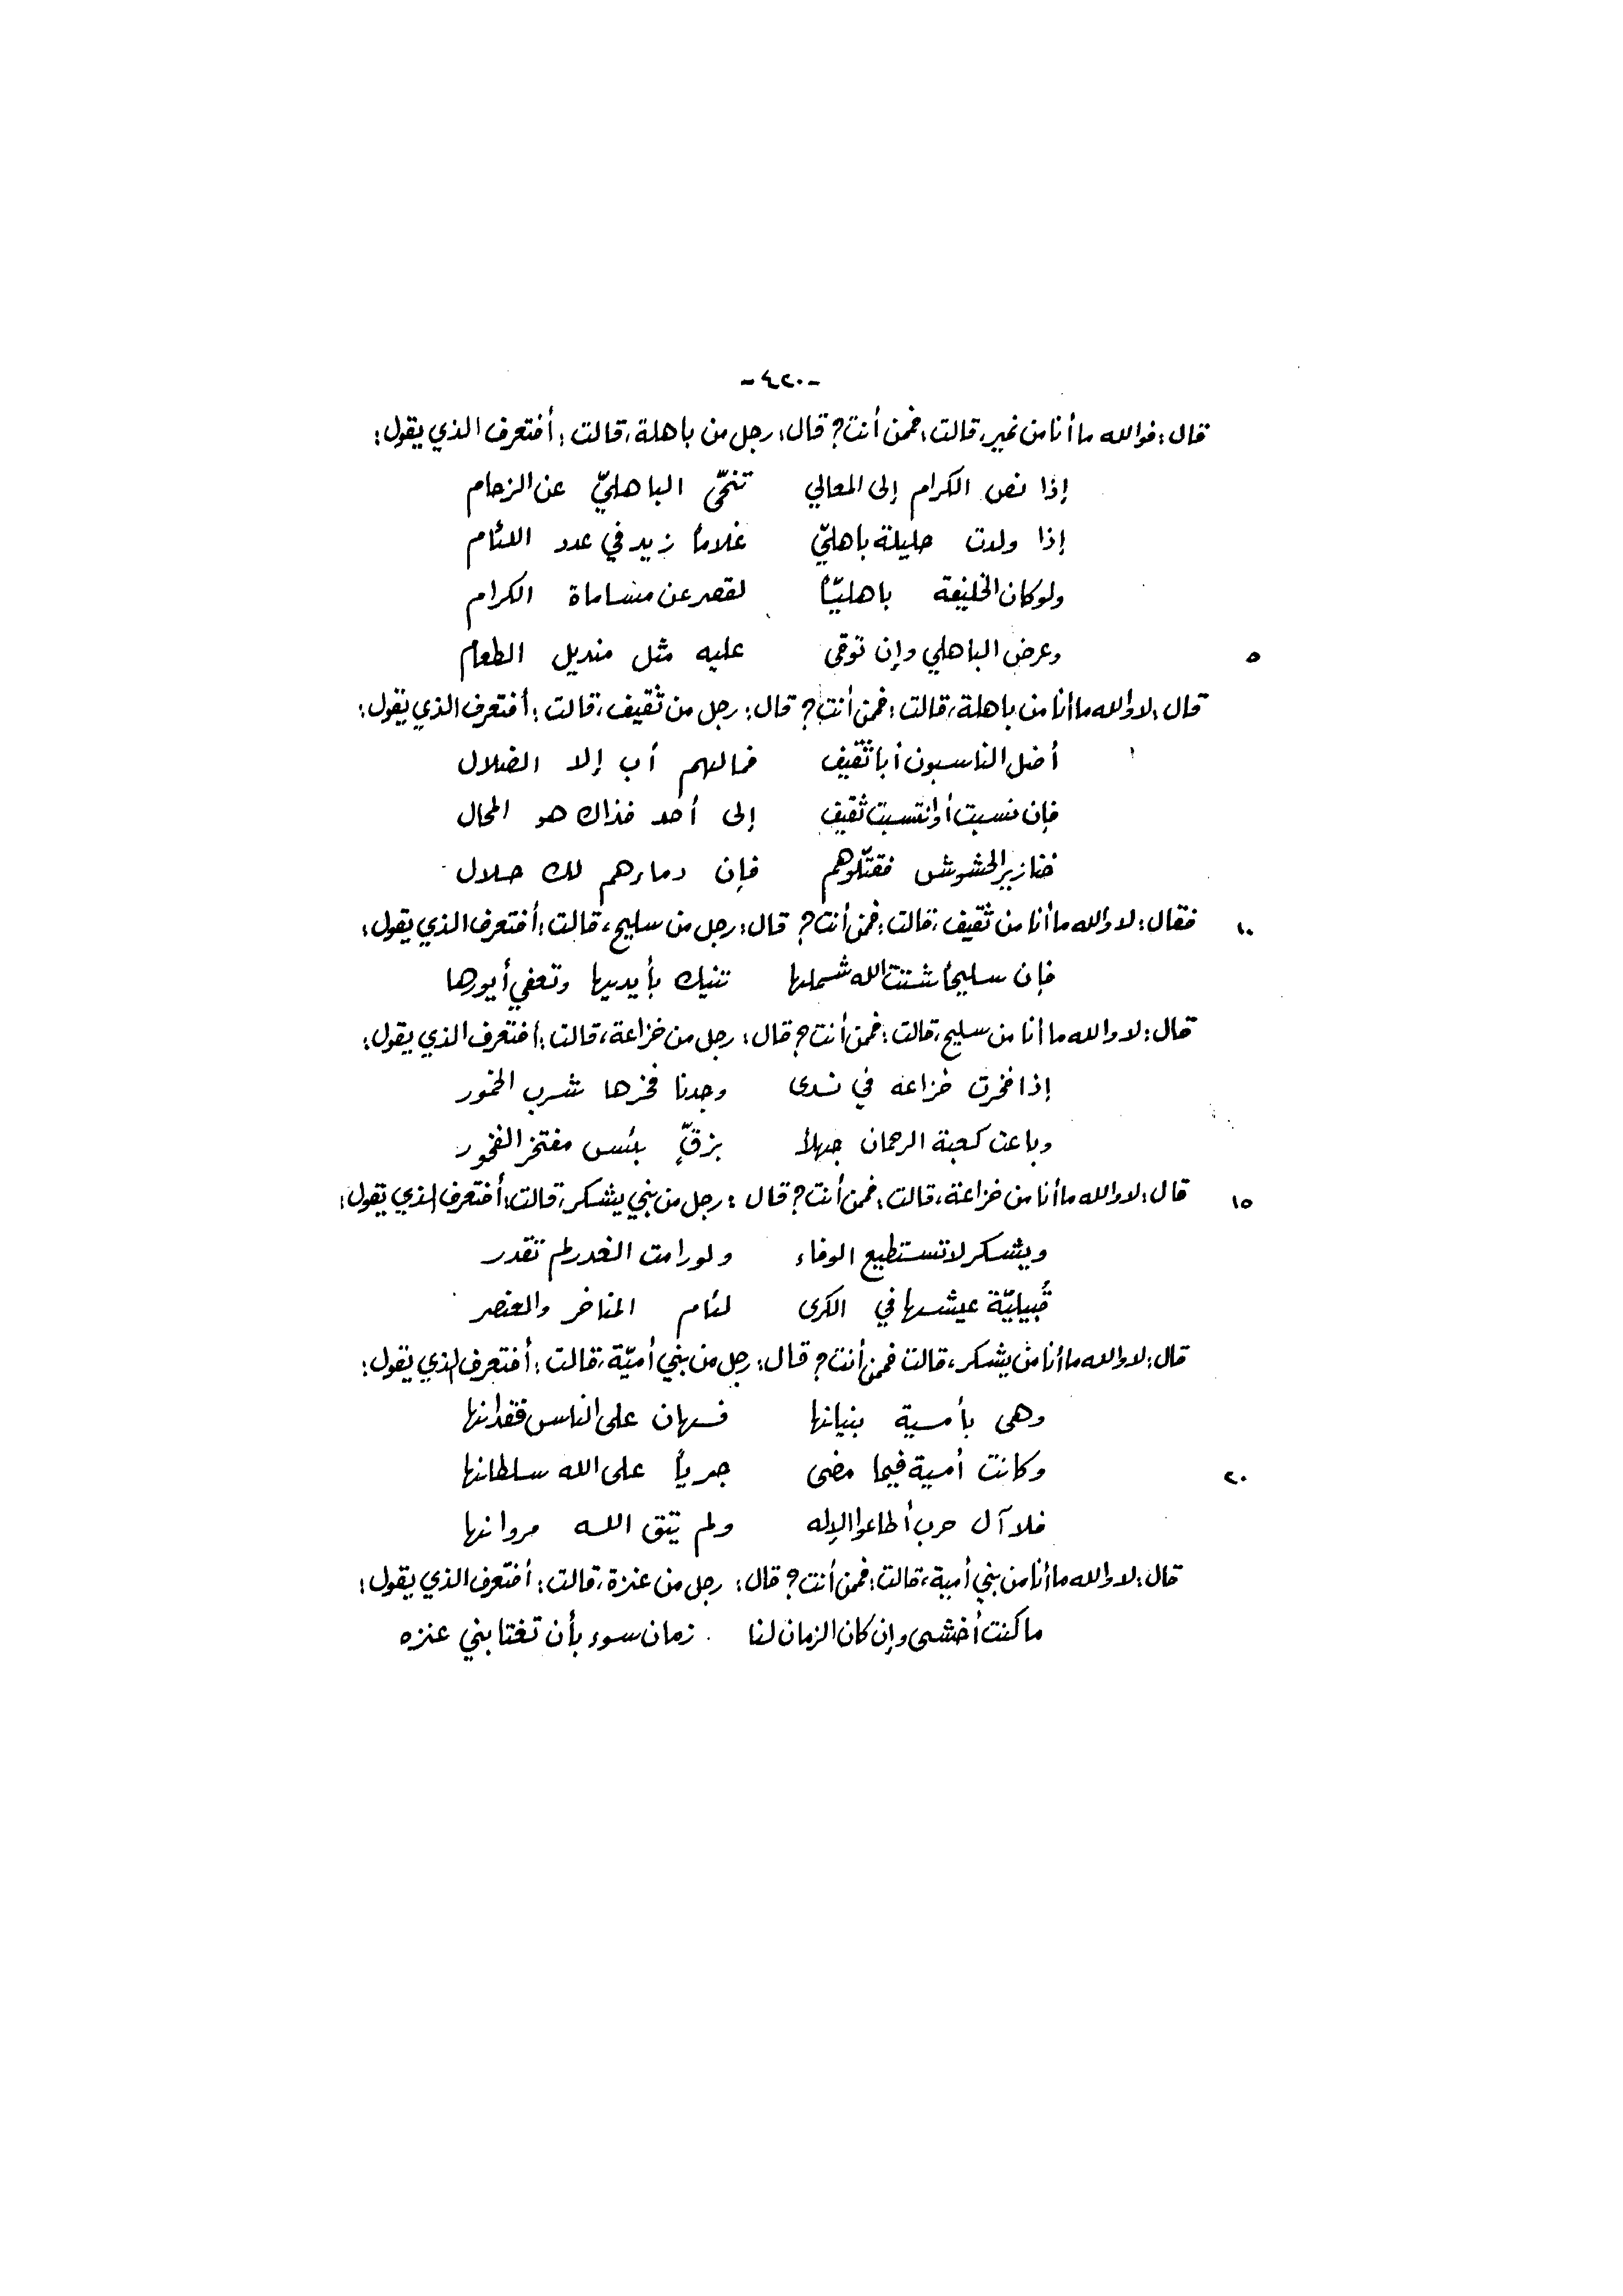 -٤٢٠-
قال: فوالله ما أنا من نمير، قالت: فمن أنت؟ قال: رجل من باهلة، قالت: أفتعرف الذي يقول:
إذا نص الكرام إلى المعالي تنحّى الباهليّ عن الزحام
إذا ولدت حليلة باهليّ غلاماً زيد في عدد اللئام
ولو كان الخليفة باهليّاً لقصر عن مساماة الكرام
٥ وعرض الباهلي وإن توقى عليه مثل منديل الطعام
قال: لا والله ما أنا من باهلة، قالت: فمن أنت؟ قال: رجل من ثقيف، قالت: أفتعرف الذي يقول:
أضل الناسبون أبا ثقيف فما لهم أب إلا الضلال
فإن نسبت أو انتسبت ثقيف إلى أحد فذاك هو المحال
خنازير الحشوش فقتّلوهم فإن دماءهم لك حلال
١٠ فقال: لا والله ما أنا من ثقيف، قالت: فمن أنت؟ قال: رجل من سليح، قالت: أفتعرف الذي يقول:
فإن سليحاً شتت الله شملها تنيك بأيديها وتعفي أيورها
قال: لا والله ما أنا من سليح، قالت: فمن أنت؟ قال: رجل من خزاعة، قالت: أفتعرف الذي يقول:
إذا فخرت خزاعه في ندى وجدنا فخرها شرب الخمور
وباعت كعبة الرحمان جهلاً بزقٍّ بئس مفتخر الفخور
١٥ قال: لا والله ما أنا من خزاعة، قالت: فمن أنت؟ قال: رجل من بني يشكر، قالت: أفتعرف الذي يقول:
ويشكر لا تستطيع الوفاء ولو رامت الغدر لم تقدر
قُبيليّة عيشها في الكرى لئام المناخر والعنصر
قال: لا والله ما أنا من يشكر، قالت فمن أنت؟ قال: رجل من بني أميّة، قالت: أفتعرف الذي يقول:
وهى بأمية بنيانها فهان على الناس فقدانها
٢٠ وكانت أمية فيما مضى جرياً على الله سلطانها
فلا آل حرب أطاعوا الإله ولم يتق الله مروانها
قال: لا والله ما أنا من بني أمية، قالت: فمن أنت؟ قال: رجل من عنزة، قالت: أفتعرف الذي يقول:
ما كنت أخشى وإن كان الزمان لنا زمان سوء بأن تغتابني عنزه